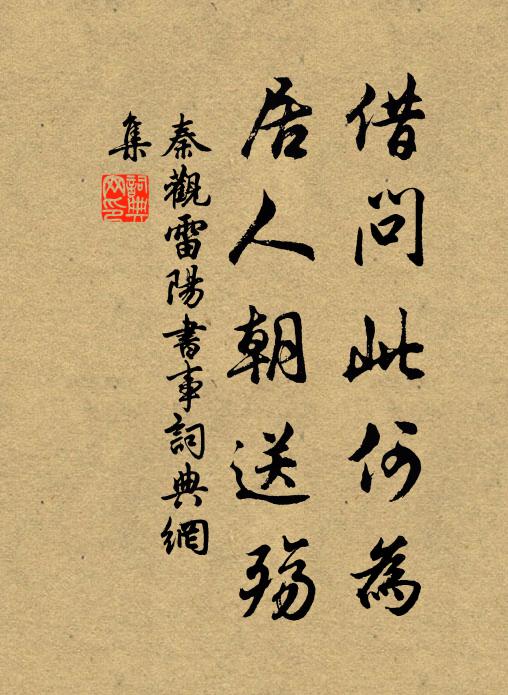 借問此何為
居人朝送殤
秦觀雷陽書事詞典網
集
詞典網印